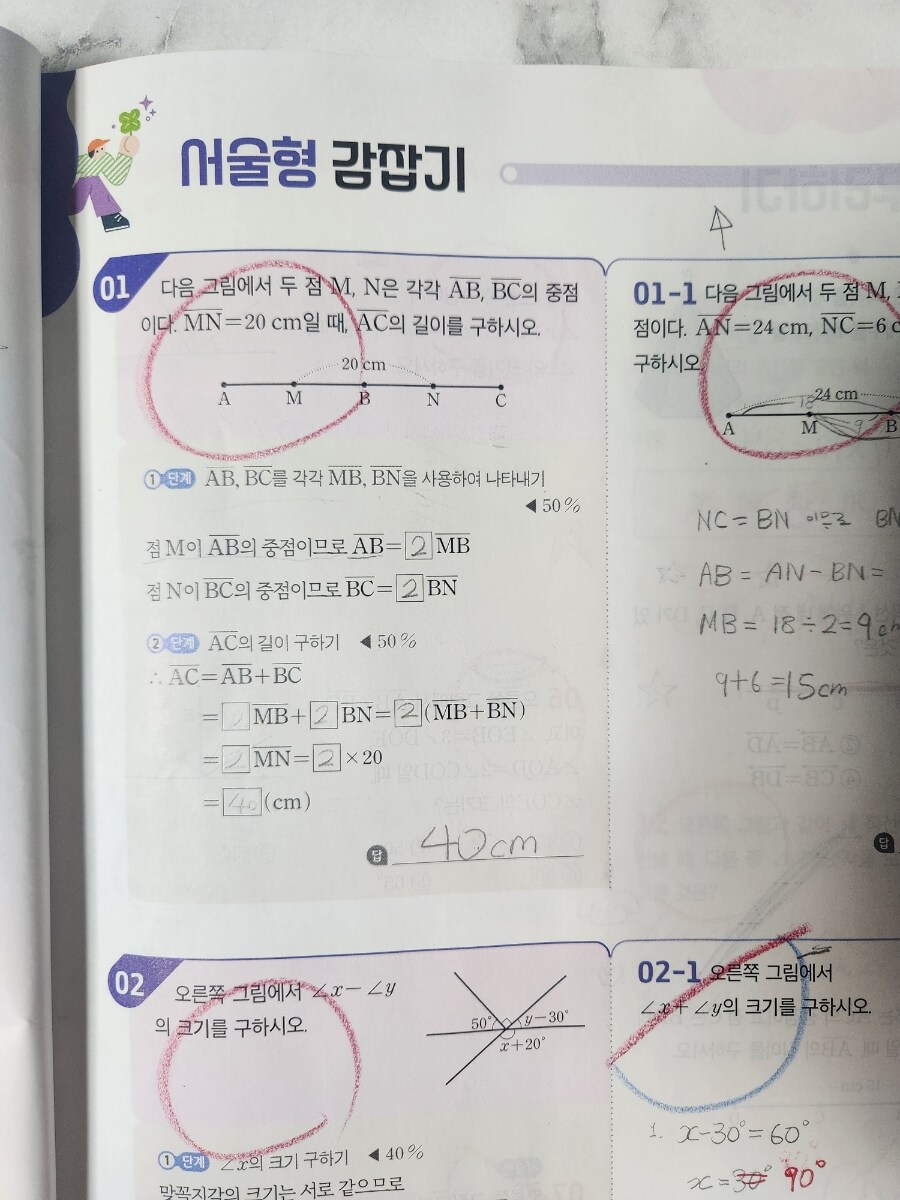 서술형 감잡기
01 다음 그림에서 두 점 M, N은 각각 AB, BC의 중점
이다. MN=20 cm일 때, AC의 길이를 구하시오.
20 cm
A M B N C
① 단계 AB, BC를 각각 MB, BN을 사용하여 나타내기
◀ 50 %
점 M이 AB의 중점이므로 AB= 2 MB
점 N이 BC의 중점이므로 BC= 2 BN
② 단계 AC의 길이 구하기 ◀ 50 %
∴ AC=AB+BC
= 2 MB+ 2 BN= 2 (MB+BN)
= 2 MN= 2 ×20
= 40 (cm)
답 40cm
01-1 다음 그림에서 두 점 M,
점이다. AN=24 cm, NC=6
구하시오.
18 24 cm
A M B
9
NC = BN 이므로 BN
AB = AN - BN =
MB = 18 ÷ 2 = 9cm
9+6 = 15cm
답
02 오른쪽 그림에서 ∠x-∠y
의 크기를 구하시오.
50° y-30°
x+20°
① 단계 ∠x의 크기 구하기 ◀ 40 %
맞꼭지각의 크기는 서로 같으므로
02-1 오른쪽 그림에서
∠x+∠y의 크기를 구하시오.
1. x-30°=60°
x=30° 90°